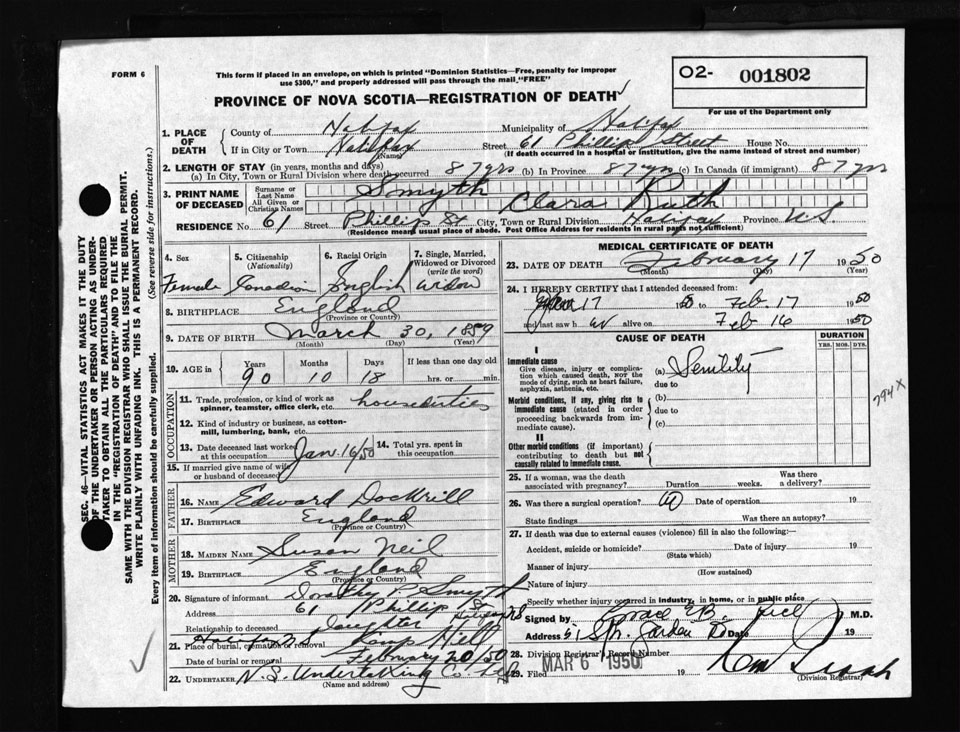 FORM 6
This form if placed in an envelope, on which is printed "Dominion Statistics—Free, penalty for improper
use $300," and properly addressed will pass through the mail "FREE"
O2- 001802
For use of the Department only
PROVINCE OF NOVA SCOTIA—REGISTRATION OF DEATH
1. PLACE OF DEATH
County of Halifax Municipality of Halifax
If in City or Town Halifax Street 61 Phillip Street House No.
(Name) (If death occurred in a hospital or institution, give the name instead of street and number)
2. LENGTH OF STAY (in years, months and days)
(a) In City, Town or Rural Division where death occurred 87 yrs (b) In Province 87 yrs (c) In Canada (if immigrant) 87 yrs
3. PRINT NAME OF DECEASED
Surname or Last Name Smyth
All Given or Christian Names Clara Ruth
RESIDENCE No. 61 Street Phillip St City, Town or Rural Division Halifax Province N.S.
(Residence means usual place of abode. Post Office Address for residents in rural parts not sufficient)
4. Sex Female
5. Citizenship (Nationality) Canadian
6. Racial Origin English
7. Single, Married, Widowed or Divorced (write the word) Widow
8. BIRTHPLACE England
(Province or Country)
9. DATE OF BIRTH March 30, 1859
(Month) (Day) (Year)
10. AGE in Years Months Days If less than one day old
90 10 18 hrs. or min.
OCCUPATION
11. Trade, profession, or kind of work as spinner, teamster, office clerk, etc. houseduties
12. Kind of industry or business, as cotton-mill, lumbering, bank, etc.
13. Date deceased last worked at this occupation Jan. 16/50
14. Total yrs. spent in this occupation
15. If married give name of wife or husband of deceased
FATHER
16. NAME Edward Dockrill
17. BIRTHPLACE England
(Province or Country)
MOTHER
18. MAIDEN NAME Susan Neil
19. BIRTHPLACE England
(Province or Country)
20. Signature of informant Dorothy F. Smyth
Address 61 Phillip St
Relationship to deceased Daughter
Halifax N S
21. Place of burial, cremation or removal Camp Hill
Date of burial or removal February 20/50
22. UNDERTAKER N.S. Undertaking Co. Ltd
(Name and address)
MEDICAL CERTIFICATE OF DEATH
23. DATE OF DEATH February 17 1950
(Month) (Day) (Year)
24. I HEREBY CERTIFY that I attended deceased from:
Jan 17 1950 to Feb. 17 1950
and last saw her alive on Feb 16 1950
CAUSE OF DEATH
DURATION
YRS. MOS. DYS.
I
Immediate cause
Give disease, injury or complication which caused death, not the mode of dying, such as heart failure, asphyxia, asthenia, etc.
(a) Senility
due to
Morbid conditions, if any, giving rise to immediate cause (stated in order proceeding backwards from immediate cause).
(b)
due to
(c)
II
Other morbid conditions (if important) contributing to death but not causally related to immediate cause.
794 X
25. If a woman, was the death associated with pregnancy? Duration weeks. Was there a delivery?
26. Was there a surgical operation? Date of operation 19
State findings Was there an autopsy?
27. If death was due to external causes (violence) fill in also the following:
Accident, suicide or homicide? Date of injury 19
(State which)
Manner of injury
(How sustained)
Nature of injury
Specify whether injury occurred in industry, in home, or in public place
Signed by M.D.
Address Garden Rd Date 19
28. Division Registrar's Record Number
MAR 6 1950
29. Filed 19
(Division Registrar)
SEC. 46—VITAL STATISTICS ACT MAKES IT THE DUTY
OF THE UNDERTAKER OR PERSON ACTING AS UNDER-
TAKER TO OBTAIN ALL THE PARTICULARS REQUIRED
IN THE "REGISTRATION OF DEATH" AND TO FILE THE
SAME WITH THE DIVISION REGISTRAR WHO SHALL ISSUE THE BURIAL PERMIT.
WRITE PLAINLY WITH UNFADING INK. THIS IS A PERMANENT RECORD.
Every item of information should be carefully supplied. (See reverse side for instructions.)